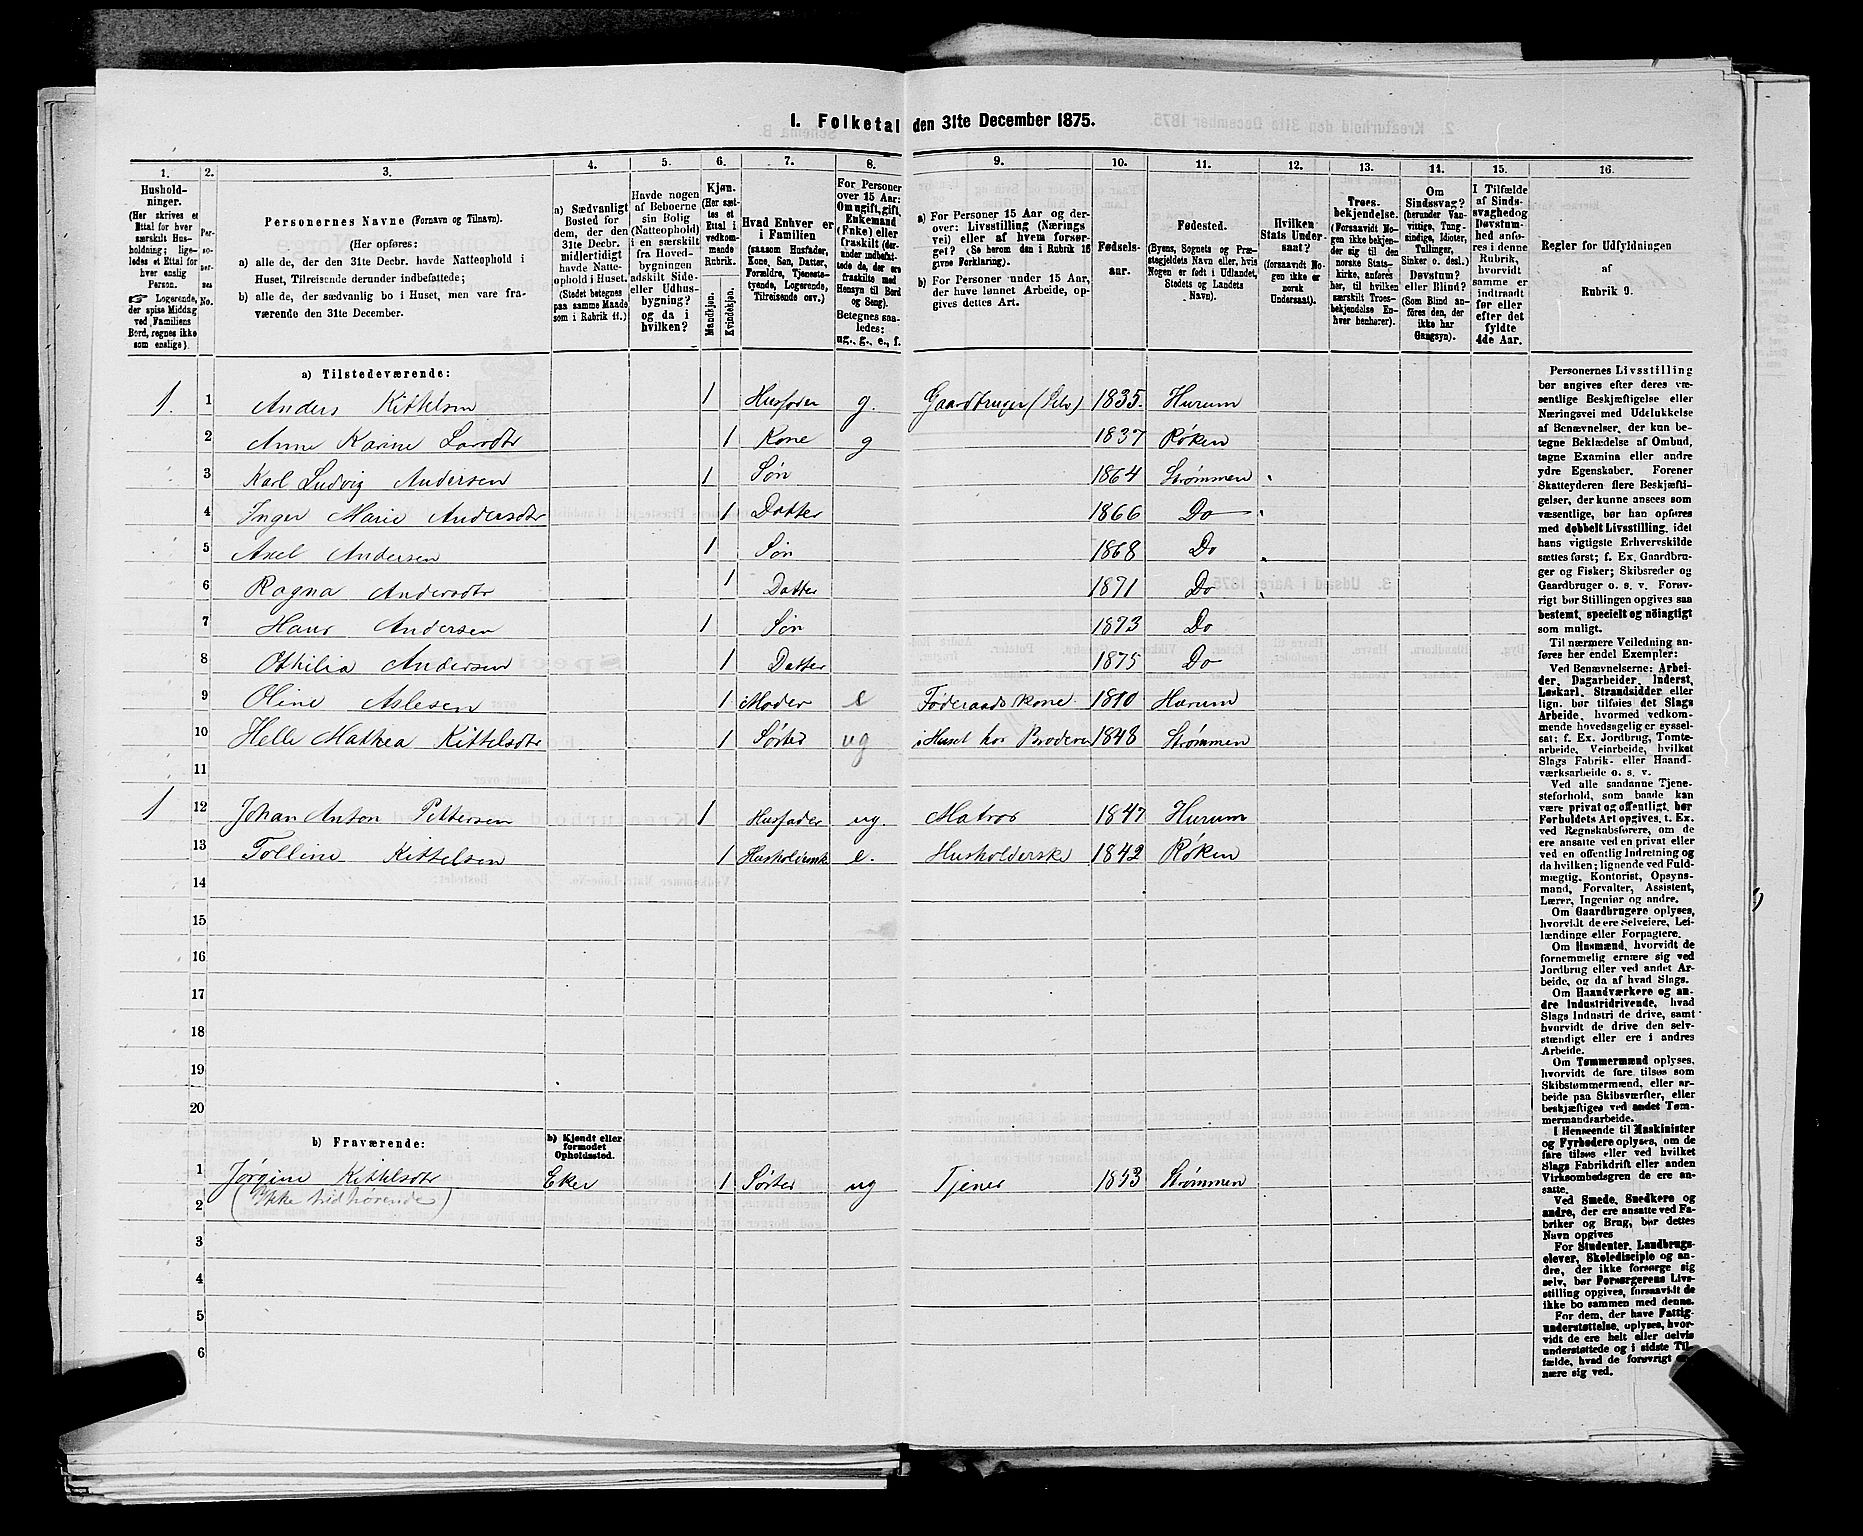 1. Folketal den 31te December 1875.
1. 2. 3. 4. 5. 6. 7. 8. 9. 10. 11. 12. 13. 14. 15. 16.
Hushold-
ninger.
(Her skrives et
Ettal for hver
særskilt Hus-
holdning; lige-
ledes et Ettal for
hver enslig
Person.
☞ Logerende,
der spise Middag
ved Familiens
Bord, regnes ikke
som enslige).
Per-
so-
ner-
ses
No.
Personernes Navne (Fornavn og Tilnavn).
(Her opføres:
a) alle de, der den 31te Decbr. havde Natteophold i
Huset, Tilreisende derunder indbefattede;
b) alle de, der sædvanlig bo i Huset, men vare fra-
værende den 31te December.
a) Sædvanligt
Bosted for
dem, der den
31te Decbr.
midlertidigt
havde Natte-
ophold i Huset.
(Stedet betegnes
paa samme Maade
som i Rubrik 11.)
Havde nogen
af Beboerne
sin Bolig
(Natteophold)
i en særskilt
fra Hoved-
bygningen
adskilt Side-
eller Udhus-
bygning?
og da i
hvilken?
Kjøn.
(Her sæt-
tes et
Ettal i
vedkom-
mende
Rubrik.
Mandkjøn.
Kvindekjøn.
Hvad Enhver er
i Familien
(saasom Husfader,
Kone, Søn, Datter,
Forældre, Tjeneste-
tyende, Logerende,
Tilreisende osv.)
For Personer
over 15 Aar:
Om ugift, gift,
Enkemand
(Enke) eller
fraskilt (der-
under indbefat-
tede de, der ere
fraskilte med
Hensyn til Bord
og Seng).
Betegnes saa-
ledes:
ug., g., e., f.
a) For Personer 15 Aar og der-
over: Livsstilling (Nærings
vei) eller af hvem forsør-
get? (Se herom den i Rubrik 16
givne Forklaring).
b) For Personer under 15 Aar,
der have lønnet Arbeide, op-
gives dettes Art.
Fødsels-
aar.
Fødested.
(Byens, Sognets og Præ-
stegjeldets Navn eller, hvis
Nogen er født i Udlandet,
Stedets og Landets
Navn).
Hvilken
Stats Under-
saat?
(forsaavidt No-
gen ikke er
norsk
Undersaat).
Troes-
bekjendelse.
(Forsaavidt No-
gen ikke bekjen-
der sig til den
norske Stats-
kirke, anføres
her, til hvilken
særskilt Troes-
bekjendelse En-
hver henhører).
Om
Sindssvag?
(herunder Van-
vittige, Tung-
sindige, Idioter,
Tullinger,
Sinker o. desl.)
Døvstum?
eller Blind?
(Som Blind an-
føres den, der
ikke har
Gangsyn).
I Tilfælde
af Sinds-
svaghed og
Døvstum-
hed anfø-
res i denne
Rubrik,
hvorvidt
samme er
indtraadt
før eller
efter det
fyldte
4de Aar.
Regler for Udfyldningen
af
Rubrik 9.
a) Tilstedeværende:
1. 1 Anders Kittelsen 1 Husfader g. Gaardbruger (Selv) 1835. Hurum
2 Anne Karine Larsdtr 1 Kone g 1837 Røken
3 Karl Ludvig Andersen 1 Søn 1864 Strømmen
4 Inger Marie Andersdtr 1 Datter 1866 Do
5 Axel Andersen 1 Søn 1868 Do
6 Ragna Andersdtr 1 Datter 1871 Do
7 Hans Andersen 1 Søn 1873 Do
8 Othilia Andersen 1 Datter 1875 Do
9 Oline Aslesen 1 Moder e Føderaadskone 1810 Hurum
10 Helle Mathea Kittelsdtr 1 Søster ug i Huset hos Broderen 1848 Strømmen
11
1 12 Johan Anton Pettersen 1 Husfader ug. Matros 1847 Hurum
13 Tolline Kittelsen 1 e. Husholderske 1842 Røken
14
15
16
17
18
19
20
b) Fraværende:
b) Kjendt eller
formodet
Opholdssted.
1 Jørgine Kittelsdtr Eker 1 Søster ug Tjener 1853 Strømmen
2 (Ikke hidhørende)
3
4
5
6
Personernes Livsstilling
bør angives efter deres væ-
sentlige Beskjæftigelse eller
Næringsvei med Udelukkelse
af Benævnelser, der kun be-
tegne Beklædelse af Ombud,
tagne Examina eller andre
ydre Egenskaber. Forener
Skatteyderen flere Beskjæfti-
gelser, der kunne ansees som
væsentlige, bør han opføres
med dobbelt Livsstilling, idet
hans vigtigste Erhvervskilde
sættes først; f. Ex. Gaardbru-
ger og Fisker; Skibsreder og
Gaardbruger o. s. v. Forøv-
rigt bør Stillingen opgives saa
bestemt, specielt og nøiagtigt
som muligt.
Til nærmere Veiledning an-
føres her endel Exempler:
Ved Benævnelserne: Arbei-
der, Dagarbeider, Inderst,
Løskarl, Strandsidder eller
lign. bør tilføies det Slags
Arbeide, hvormed vedkom-
mende hovedsagelig er syssel-
sat; f. Ex. Jordbrug, Tomte-
arbeide, Veiarbeide, hvilket
Slags Fabrik- eller Haand-
værksarbeide o. s. v.
Ved alle saadanne Tjene-
steforhold, som baade kan
være privat og offentligt, bør
Forholdets Art opgives. t. Ex.
ved Regnskabsførere, om de
ere ansatte ved en privat eller
ved en offentlig Indretning og
da hvilken; lignende ved Fuld-
mægtig, Kontorist, Opsyns-
mand, Forvalter, Assistent,
Lærer, Ingeniør og andre.
Om Gaardbrugere oplyses,
hvorvidt de ere Selveiere, Lei-
lændinge eller Forpagtere.
Om Husmænd, hvorvidt de
fornemmelig ernære sig ved
Jordbrug eller ved andet Ar-
beide, og da af hvad Slags.
Om Haandværkere og an-
dre Industridrivende, hvad
Slags Industri de drive, samt
hvorvidt de drive den selv-
stændigt eller ere i andres
Arbeide.
Om Tømmermænd oplyses,
hvorvidt de fare tilsøs som
Skibstømmermænd, eller ar-
beide paa Skibsværfter, eller
beskjæftiges ved andet Tøm-
mermandsarbeide.
I Henseende til Maskinister
og Fyrbødere oplyses, om de
fare tilsøs eller ved hvilket
Slags Fabrikdrift eller anden
Virksombedsgren de ere an-
satte.
Ved Smede, Snedkere og
andre, der ere ansatte ved Fa-
briker og Brug, bør dettes
Navn opgives
For Studenter, Landbrugs-
elever, Skoledisciple og an-
dre, der ikke forsørge sig
selv, bør Forsørgerens Livs-
stilling opgives, forsaavidt de
ikke bo sammen med denne.
For dem, der have Fattig-
understøttelse, oplyses, hvor-
vidt de ere helt eller delvis
understøttede og i sidste Til-
fælde, hvad de forøvrigt er-
nære sig ved.